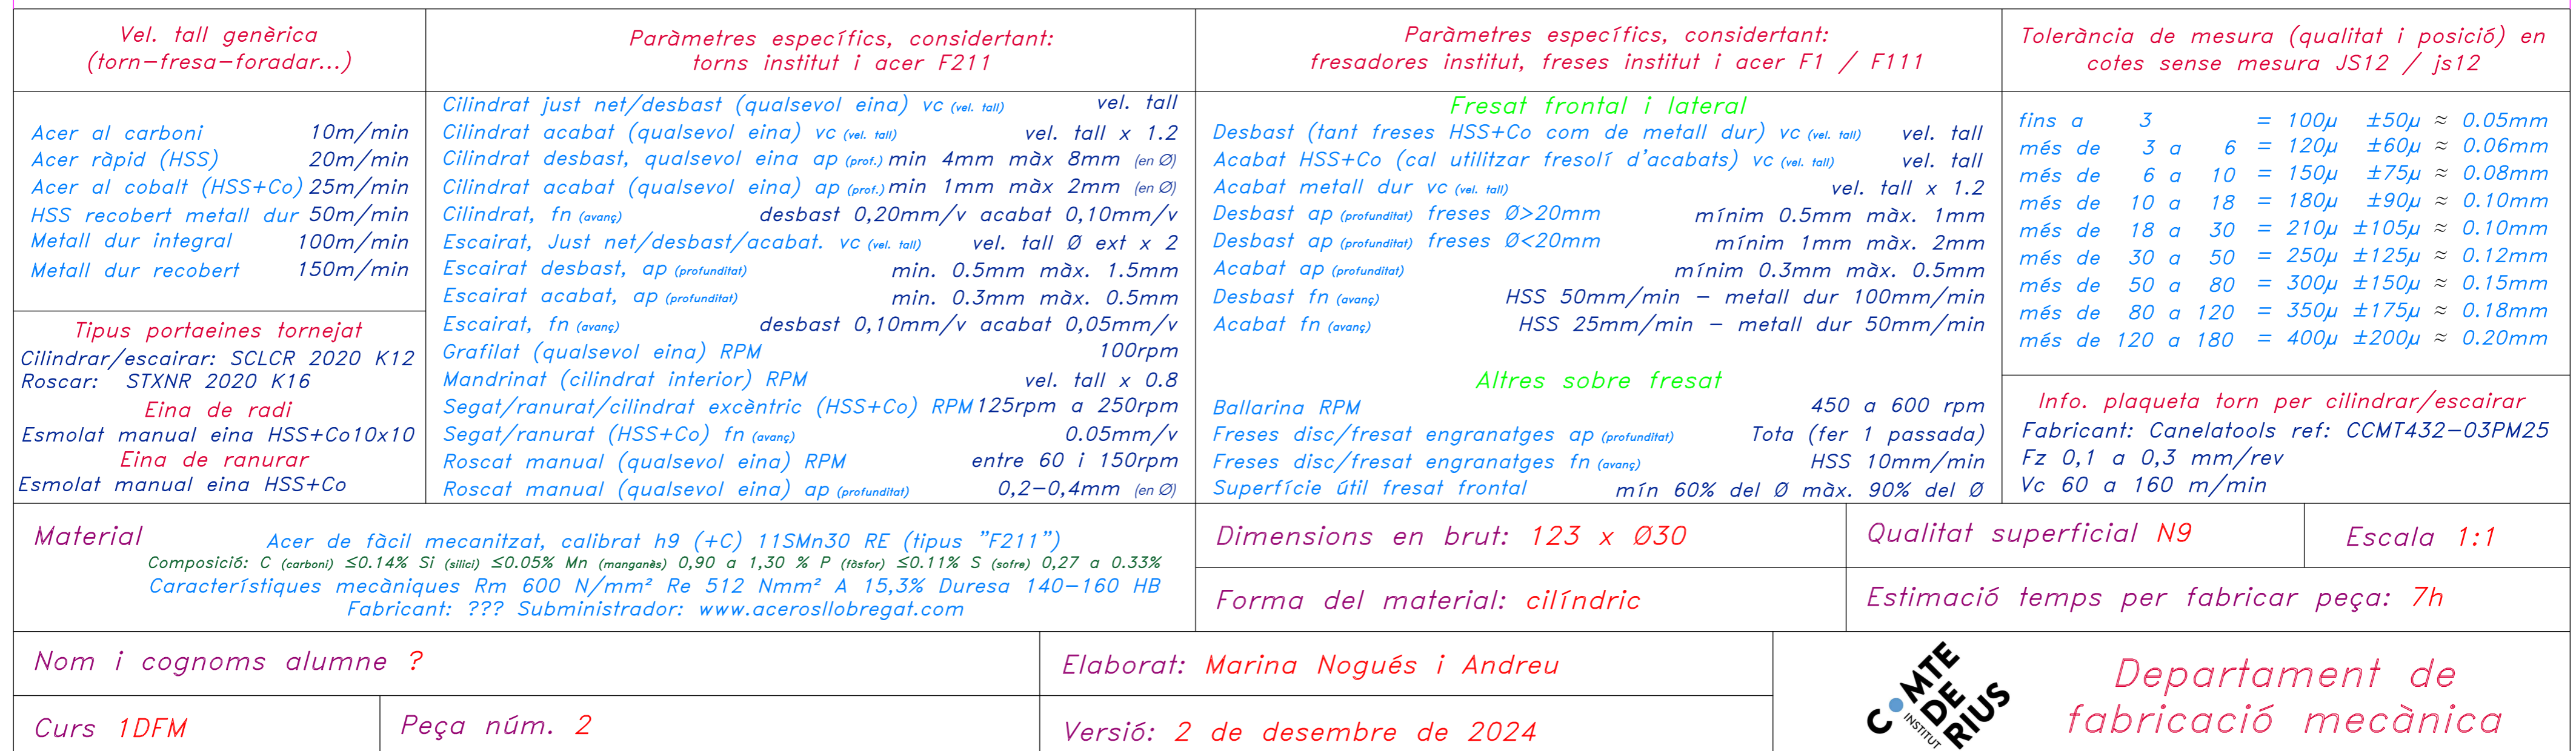 Vel. tall genèrica
(torn-fresa-foradar...)
Acer al carboni 10m/min
Acer ràpid (HSS) 20m/min
Acer al cobalt (HSS+Co) 25m/min
HSS recobert metall dur 50m/min
Metall dur integral 100m/min
Metall dur recobert 150m/min
Tipus portaeines tornejat
Cilindrar/escairar: SCLCR 2020 K12
Roscar: STXNR 2020 K16
Eina de radi
Esmolat manual eina HSS+Co10x10
Eina de ranurar
Esmolat manual eina HSS+Co
Paràmetres específics, considertant:
torns institut i acer F211
Cilindrat just net/desbast (qualsevol eina) vc (vel. tall) vel. tall
Cilindrat acabat (qualsevol eina) vc (vel. tall) vel. tall x 1.2
Cilindrat desbast, qualsevol eina ap (prof.) min 4mm màx 8mm (en Ø)
Cilindrat acabat (qualsevol eina) ap (prof.) min 1mm màx 2mm (en Ø)
Cilindrat, fn (avanç) desbast 0,20mm/v acabat 0,10mm/v
Escairat, Just net/desbast/acabat. vc (vel. tall) vel. tall Ø ext x 2
Escairat desbast, ap (profunditat) min. 0.5mm màx. 1.5mm
Escairat acabat, ap (profunditat) min. 0.3mm màx. 0.5mm
Escairat, fn (avanç) desbast 0,10mm/v acabat 0,05mm/v
Grafilat (qualsevol eina) RPM 100rpm
Mandrinat (cilindrat interior) RPM vel. tall x 0.8
Segat/ranurat/cilindrat excèntric (HSS+Co) RPM 125rpm a 250rpm
Segat/ranurat (HSS+Co) fn (avanç) 0.05mm/v
Roscat manual (qualsevol eina) RPM entre 60 i 150rpm
Roscat manual (qualsevol eina) ap (profunditat) 0,2-0,4mm (en Ø)
Paràmetres específics, considertant:
fresadores institut, freses institut i acer F1 / F111
Fresat frontal i lateral
Desbast (tant freses HSS+Co com de metall dur) vc (vel. tall) vel. tall
Acabat HSS+Co (cal utilitzar fresolí d'acabats) vc (vel. tall) vel. tall
Acabat metall dur vc (vel. tall) vel. tall x 1.2
Desbast ap (profunditat) freses Ø>20mm mínim 0.5mm màx. 1mm
Desbast ap (profunditat) freses Ø<20mm mínim 1mm màx. 2mm
Acabat ap (profunditat) mínim 0.3mm màx. 0.5mm
Desbast fn (avanç) HSS 50mm/min - metall dur 100mm/min
Acabat fn (avanç) HSS 25mm/min - metall dur 50mm/min
Altres sobre fresat
Ballarina RPM 450 a 600 rpm
Freses disc/fresat engranatges ap (profunditat) Tota (fer 1 passada)
Freses disc/fresat engranatges fn (avanç) HSS 10mm/min
Superfície útil fresat frontal mín 60% del Ø màx. 90% del Ø
Tolerància de mesura (qualitat i posició) en
cotes sense mesura JS12 / js12
fins a 3 = 100μ ±50μ ≈ 0.05mm
més de 3 a 6 = 120μ ±60μ ≈ 0.06mm
més de 6 a 10 = 150μ ±75μ ≈ 0.08mm
més de 10 a 18 = 180μ ±90μ ≈ 0.10mm
més de 18 a 30 = 210μ ±105μ ≈ 0.10mm
més de 30 a 50 = 250μ ±125μ ≈ 0.12mm
més de 50 a 80 = 300μ ±150μ ≈ 0.15mm
més de 80 a 120 = 350μ ±175μ ≈ 0.18mm
més de 120 a 180 = 400μ ±200μ ≈ 0.20mm
Info. plaqueta torn per cilindrar/escairar
Fabricant: Canelatools ref: CCMT432-03PM25
Fz 0,1 a 0,3 mm/rev
Vc 60 a 160 m/min
Material
Acer de fàcil mecanitzat, calibrat h9 (+C) 11SMn30 RE (tipus "F211")
Composició: C (carboni) ≤0.14% Si (silici) ≤0.05% Mn (manganès) 0,90 a 1,30 % P (fòsfor) ≤0.11% S (sofre) 0,27 a 0.33%
Característiques mecàniques Rm 600 N/mm² Re 512 Nmm² A 15,3% Duresa 140-160 HB
Fabricant: ??? Subministrador: www.acerosllobregat.com
Dimensions en brut: 123 x Ø30
Qualitat superficial N9
Escala 1:1
Forma del material: cilíndric
Estimació temps per fabricar peça: 7h
Nom i cognoms alumne ?
Elaborat: Marina Nogués i Andreu
Curs 1DFM
Peça núm. 2
Versió: 2 de desembre de 2024
COMTE
DE
RIUS
INSTITUT
Departament de
fabricació mecànica